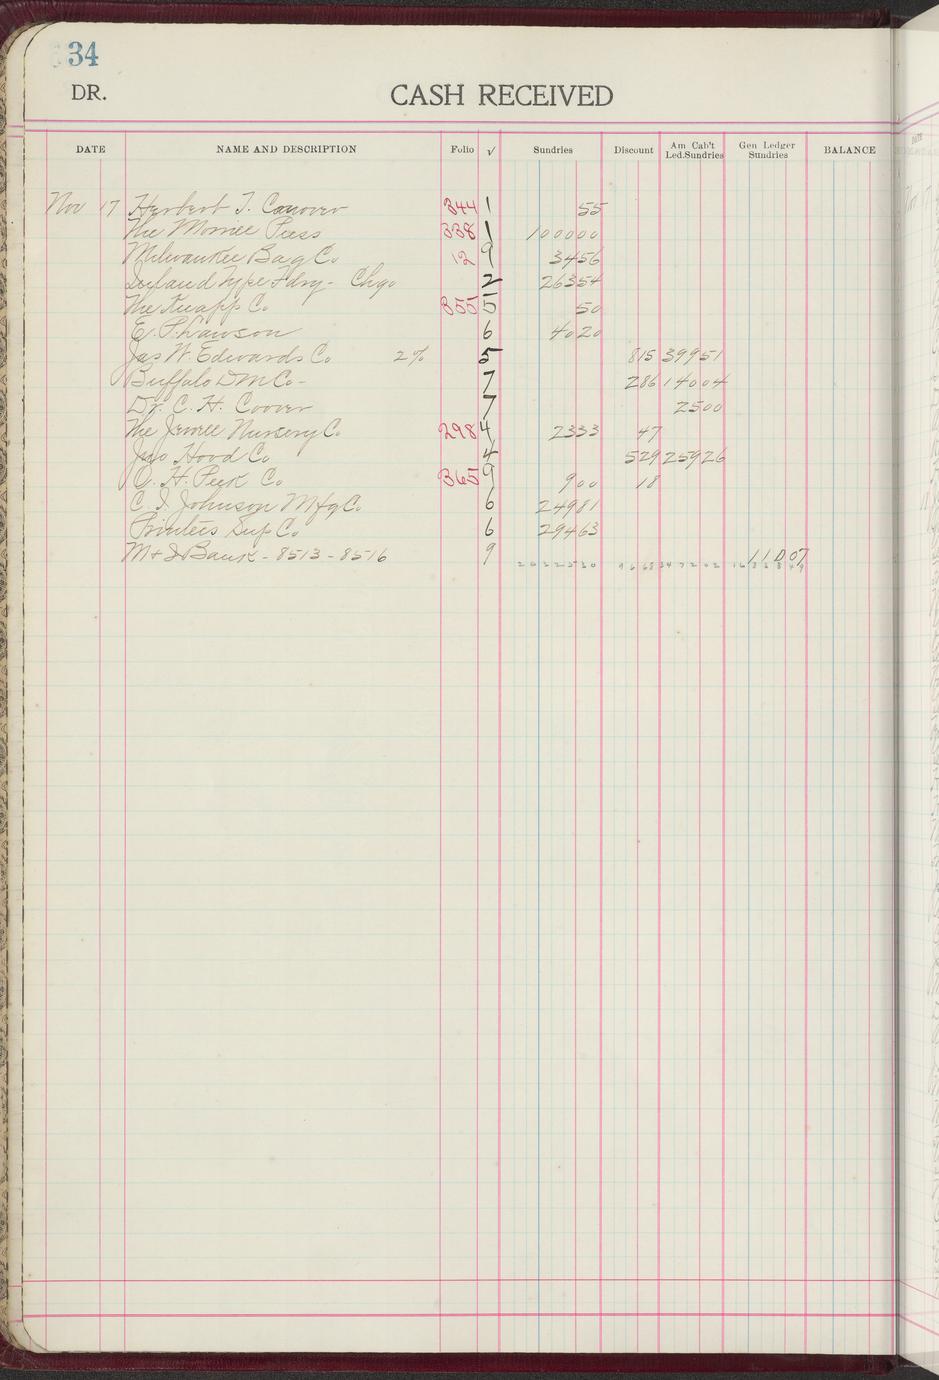 34
DR. CASH RECEIVED
DATE NAME AND DESCRIPTION Folio √ Sundries Discount Am Cab't Led.Sundries Gen Ledger Sundries BALANCE
Nov 17 Herbert T. Conover 344 1 55
The Morrill Press 338 1 100000
Milwaukee Bag Co 12 9 3456
Inland Type Fdry - Chgo 2 26354
The Knapp Co 355 5 50
E. P. Lawson 6 4020
Jas W. Edwards Co 2% 5 815 39951
Buffalo D M Co - 7 286 14004
Dr. C. H. Coover 7 2500
The Jewell Nursery Co 298 4 2333 47
Jno Hood Co 4 529 25926
H. Peek Co 365 9 900 18
C. I. Johnson Mfg Co 6 24981
Printers Sup Co 6 29463
M & I Bank - 8513 - 8516 9 11007